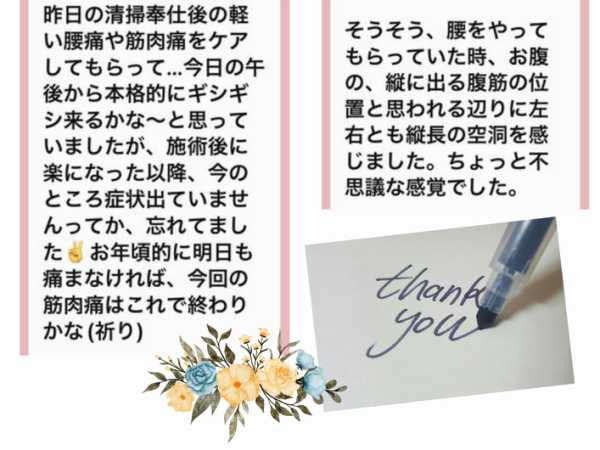 昨日の清掃奉仕後の軽
い腰痛や筋肉痛をケア
してもらって...今日の午
後から本格的にギシギ
シ来るかな〜と思って
いましたが、施術後に
楽になった以降、今の
ところ症状出ていませ
んってか、忘れてまし
た✌️お年頃的に明日も
痛まなければ、今回の
筋肉痛はこれで終わり
かな(祈り)
そうそう、腰をやって
もらっていた時、お腹
の、縦に出る腹筋の位
置と思われる辺りに左
右とも縦長の空洞を感
じました。ちょっと不
思議な感覚でした。
thank
you